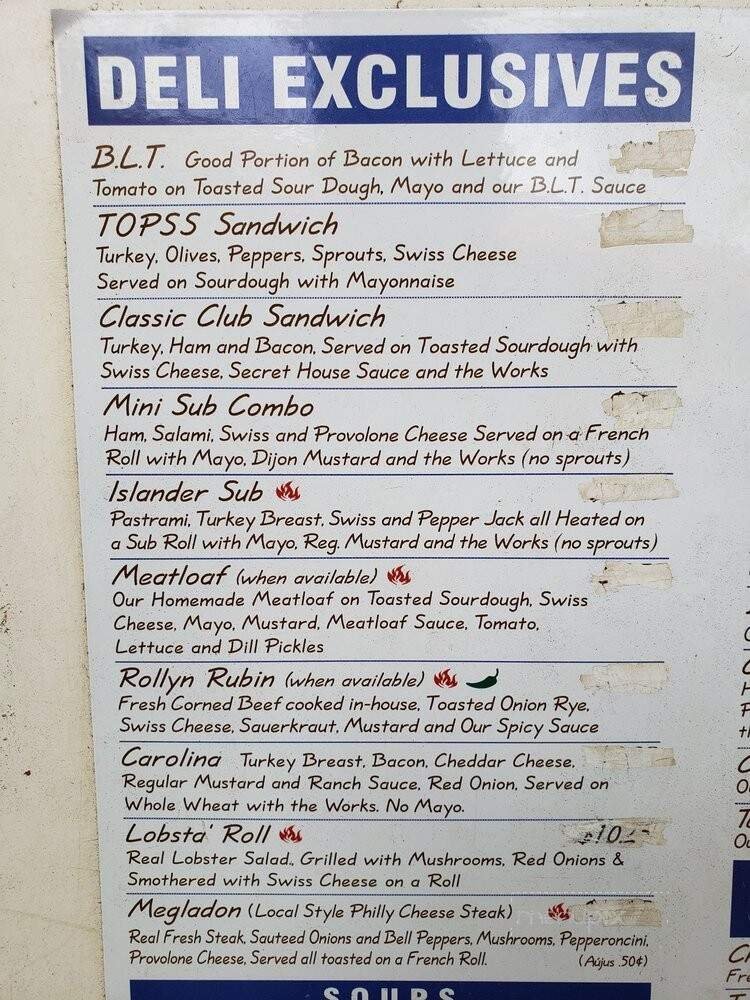 DELI EXCLUSIVES
B.L.T. Good Portion of Bacon with Lettuce and
Tomato on Toasted Sour Dough, Mayo and our B.L.T. Sauce
TOPSS Sandwich
Turkey, Olives, Peppers, Sprouts, Swiss Cheese
Served on Sourdough with Mayonnaise
Classic Club Sandwich
Turkey, Ham and Bacon, Served on Toasted Sourdough with
Swiss Cheese, Secret House Sauce and the Works
Mini Sub Combo
Ham, Salami, Swiss and Provolone Cheese Served on a French
Roll with Mayo, Dijon Mustard and the Works (no sprouts)
Islander Sub
Pastrami, Turkey Breast, Swiss and Pepper Jack all Heated on
a Sub Roll with Mayo, Reg. Mustard and the Works (no sprouts)
Meatloaf (when available)
Our Homemade Meatloaf on Toasted Sourdough, Swiss
Cheese, Mayo, Mustard, Meatloaf Sauce, Tomato,
Lettuce and Dill Pickles
Rollyn Rubin (when available)
Fresh Corned Beef cooked in-house, Toasted Onion Rye,
Swiss Cheese, Sauerkraut, Mustard and Our Spicy Sauce
Carolina Turkey Breast, Bacon, Cheddar Cheese,
Regular Mustard and Ranch Sauce, Red Onion, Served on
Whole Wheat with the Works. No Mayo.
Lobsta' Roll
Real Lobster Salad., Grilled with Mushrooms, Red Onions &
Smothered with Swiss Cheese on a Roll
Megladon (Local Style Philly Cheese Steak)
Real Fresh Steak, Sauteed Onions and Bell Peppers, Mushrooms, Pepperoncini,
Provolone Cheese, Served all toasted on a French Roll. (Aújus .50¢)
SOUPS